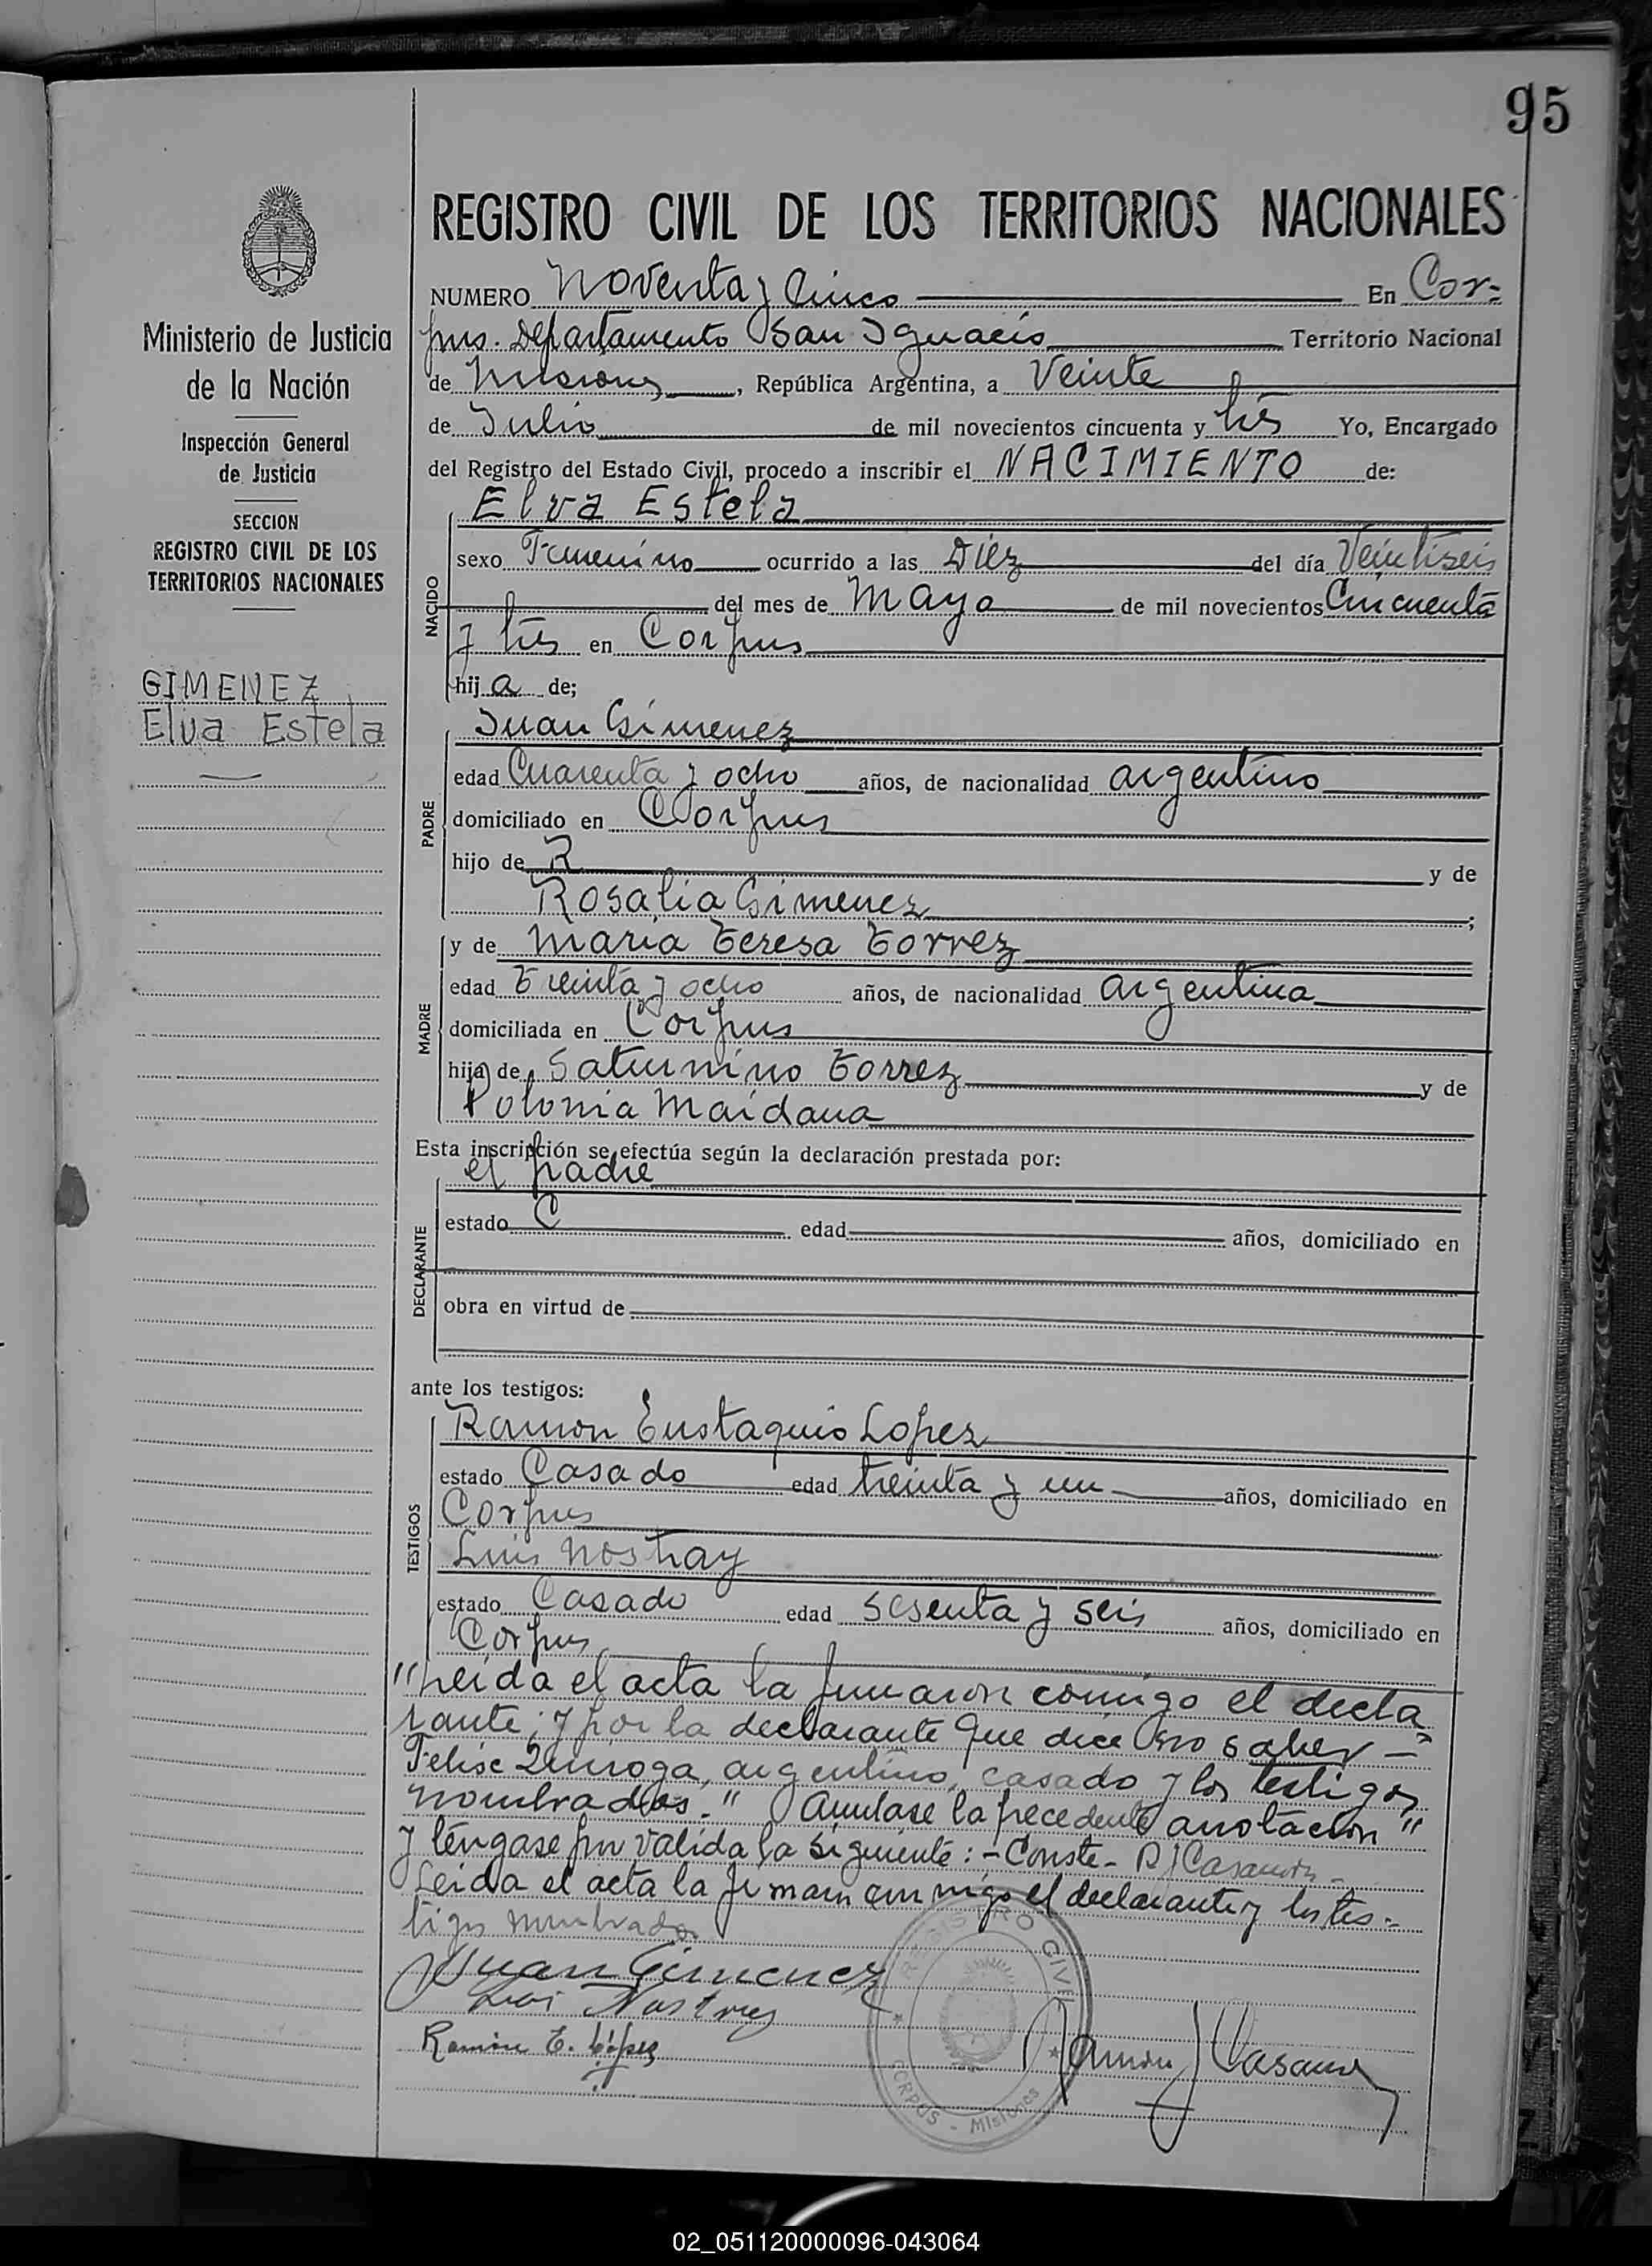 95
REGISTRO CIVIL DE LOS TERRITORIOS NACIONALES
NUMERO Noventa y Cinco En Cor=
pus. Departamento San Ignacio Territorio Nacional
de Misiones, República Argentina, a Veinte
de Julio de mil novecientos cincuenta y trés Yo, Encargado
del Registro del Estado Civil, procedo a inscribir el NACIMIENTO de:
Ministerio de Justicia
de la Nación
Inspección General
de Justicia
SECCION
REGISTRO CIVIL DE LOS
TERRITORIOS NACIONALES
GIMENEZ
Elva Estela
NACIDO
Elva Estela
sexo Femenino ocurrido a las Diez del día Veintiseis
del mes de Mayo de mil novecientos Cincuenta
y trés en Corpus
hija de;
PADRE
Juan Gimenez
edad Cuarenta y ocho años, de nacionalidad argentino
domiciliado en Corpus
hijo de y de
Rosalia Gimenez;
MADRE
y de Maria Teresa Torrez
edad Treinta y ocho años, de nacionalidad argentina
domiciliada en Corpus
hija de Saturnino Torrez y de
Polonia Maidana
Esta inscripción se efectúa según la declaración prestada por:
el padre
DECLARANTE
estado C edad años, domiciliado en
obra en virtud de
ante los testigos:
TESTIGOS
Ramon Eustaquio Lopez
estado Casado edad treinta y un años, domiciliado en
Corpus
Luis Nostray
estado Casado edad sesenta y seis años, domiciliado en
Corpus
"Leida el acta la firmaron comigo el decla
rante; y por la declarante que dice no saber -
Felise Quiroga, argentino, casado y los testigos
nombrados." Anulase la precedente anotación"
y téngase por valida la siguiente: - Conste - R J Casanova -
Leida el acta la firman conmigo el declarante y los tes=
tigos nombrados
Juan Gimenez
Ramón E. López
REGISTRO CIVIL
CORPUS - Misiones
02_051120000096-043064